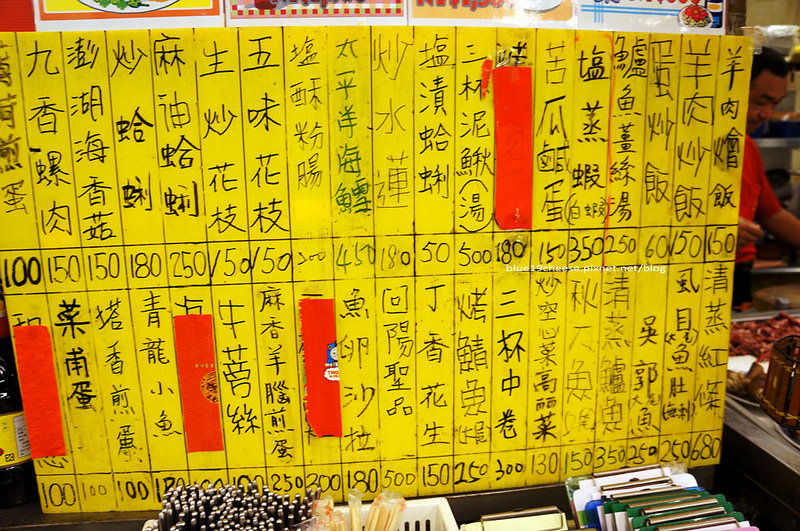 羊肉燴飯 150
羊肉炒飯 150
蛋炒飯 60
鱸魚薑絲湯 250
塩蒸蝦(白蝦) 350
苦瓜鹹蛋 150
180
三杯泥鰍(湯) 500
塩漬蛤蜊 50
炒水蓮 180
太平洋海鱺 450
塩酥粉腸 200
五味花枝 150
生炒花枝 150
麻油蛤蜊 250
炒蛤蜊 180
澎湖海香菇 150
九香螺肉 150
煎蛋 100
清蒸紅條 680
虱目魚肚 250
吳郭魚 250
清蒸鱸魚 350
秋 魚 150
炒空心菜高丽菜 130
三杯中卷 300
烤鯖魚 250
丁香花生 150
回陽聖品 500
魚卵沙拉 180
300
麻香羊腦煎蛋 250
牛蒡絲 100
青龍小魚
塔香煎蛋 100
菜甫蛋 100
100
blue19cheese.pixnet.net/blog